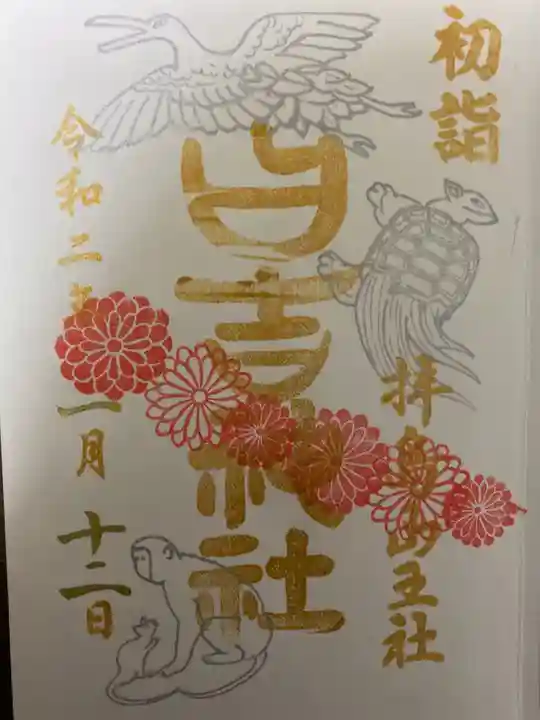 初詣
拝島山王社
日吉神社
令和二年
一月
十二日